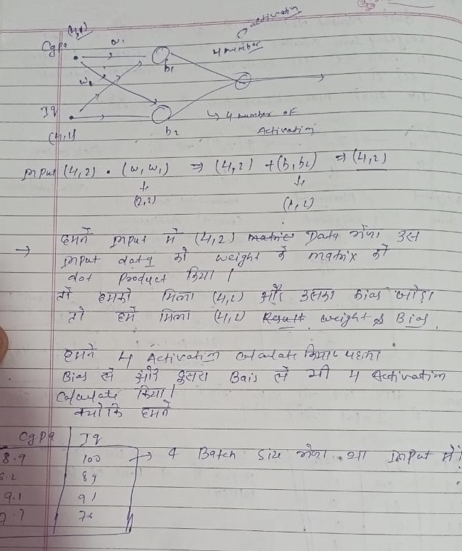 Activation
4 number
Cgpa
w1
b1
Iq
(4,1)
b2
↳ 4 number of
Activation
Input (4,2) • (w, w1) ⇒ (4,2) + (b1, b2) ⇒ (4,2)
(2,2)
→ हमने Input में (4,2) matrix Data भेजा उस
Input data को weight के matrix को
dot Product किया।
तो हमको मिला (4,2) और उसका bias जोड़ा
तो हमें मिला (4,2) Result weight & Bias
हमने 4 Activation Calculate किया पहला
Bias से और दूसरा Bais से भी 4 Activation
Calculate किया।
क्योंकि हमने
Cgpa Iq
8.9 100 → 4 Batch Size भेजा था Input में।
9.1 91